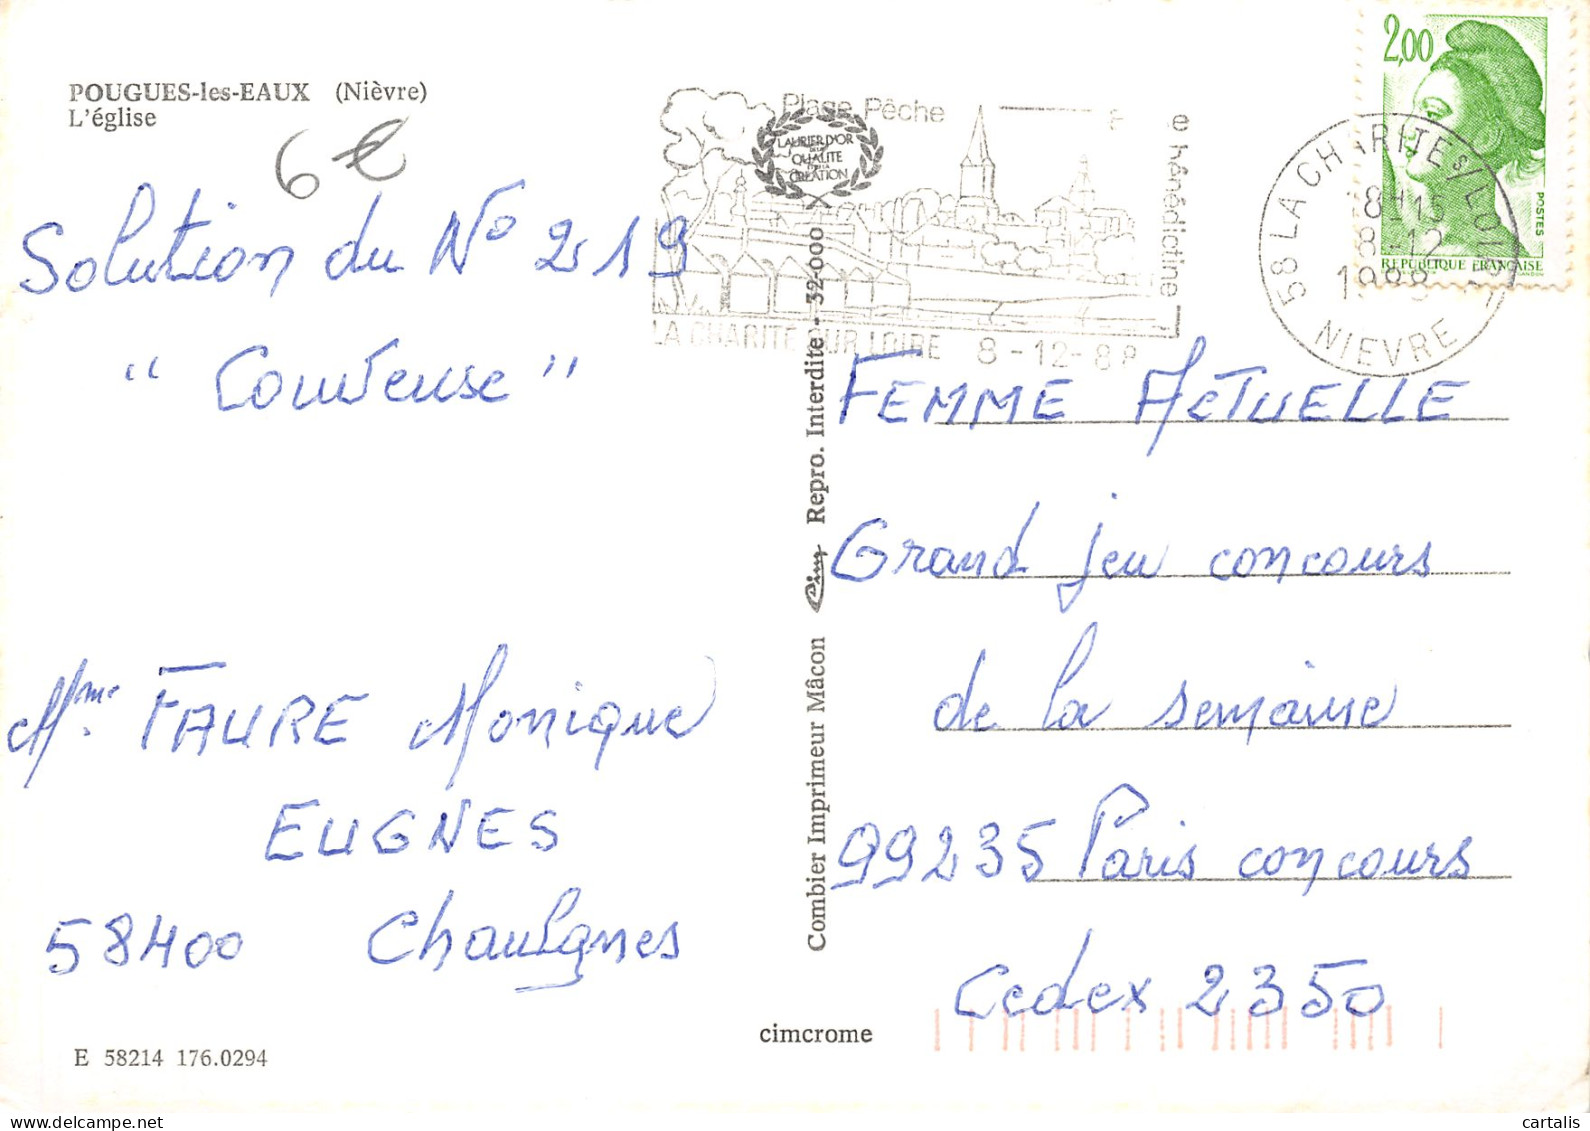 POUGUES-les-EAUX (Nièvre)
L'église
6 €
Solution du N° 219
" Couveuse "
Mme FAURE Monique
EUGNES
58400 Chaulgnes
E 58214 176.0294
cimcrome
Combier Imprimeur Mâcon Cim Repro. Interdite - 32-000
LAURIER D'OR
DE LA
QUALITE
ET DE LA
CREATION
Plage Pêche
bénédictine
LA CHARITE SUR LOIRE 8-12-8
58 LA CHARITE S/LOIRE
8H15
8-12
1988
NIEVRE
2,00
POSTES
REPUBLIQUE FRANÇAISE
GANDON
FEMME ACTUELLE
Grand jeu concours
de la semaine
99235 Paris concours
Cedex 2350
cartalis.com